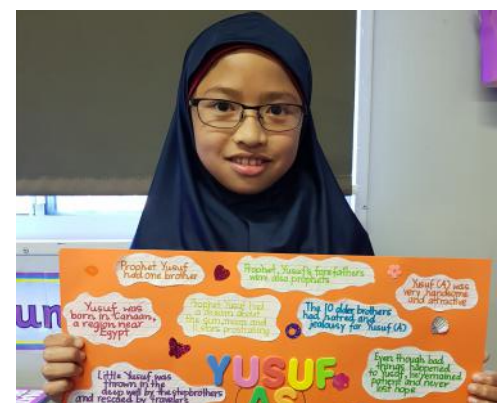 Prophet Yusuf
had one brother
Prophet Yusuf's forefathers
were also prophets
Yusuf (A) was
very handsome
and attractive
Yusuf was
born in Canaan,
a region near
Egypt
Prophet Yusuf had
a dream about
the sun, moon and
11 stars prostrating
The 10 older brothers
had hatred and
jealousy for Yusuf (A)
un
Little Yusuf was
thrown in the
deep well by the stepbrothers
and rescued by travelers
YUSUF
AS
Even though bad
things happened
to Yusuf, he remained
patient and never
lost hope